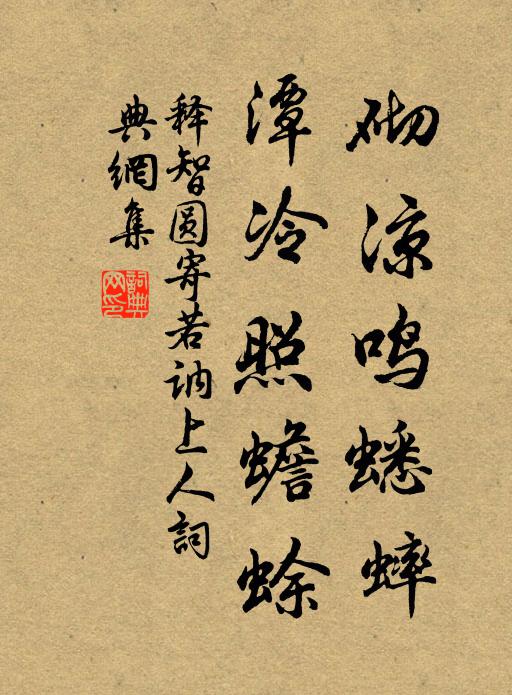 砌凉鸣蟋蟀
潭冷照蟾蜍
释智圆寄若讷上人詞
典網集
詞典网印